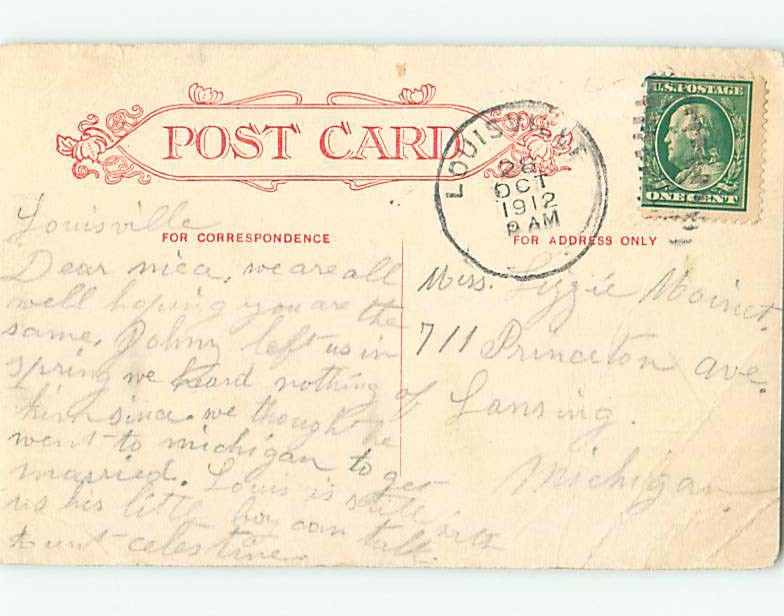 POST CARD
LOUISVILLE
28
OCT
1912
AM
U.S. POSTAGE
ONE CENT
FOR CORRESPONDENCE
FOR ADDRESS ONLY
Louisville
Dear niece, we are all
well hoping you are the
same, Johny left us in
spring we heard nothing of
him since. we thought he
went to michigan to get
married. Louis is still with
us his little boy can talk.
aunt celestine
Miss. Lizzie Moinet.
711 Princeton ave.
Lansing.
Michigan.